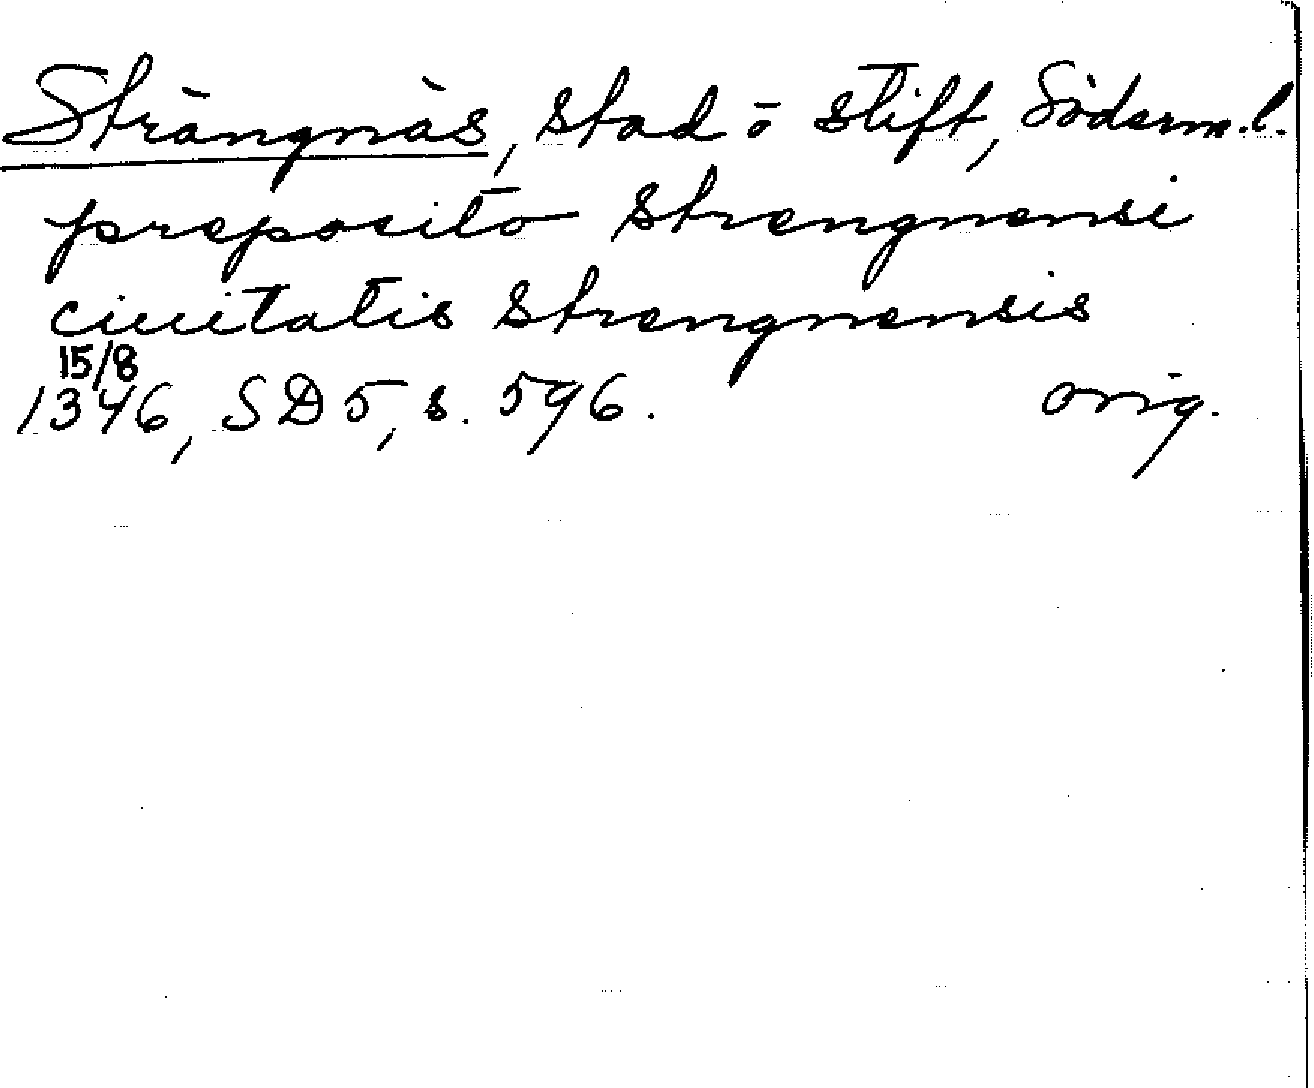 Strängnäs, stad o stift, Söderm.l.
preposito Strengnensi
ciuitatis Strengnensis
15/8
1346, SD 5, s. 596. orig.